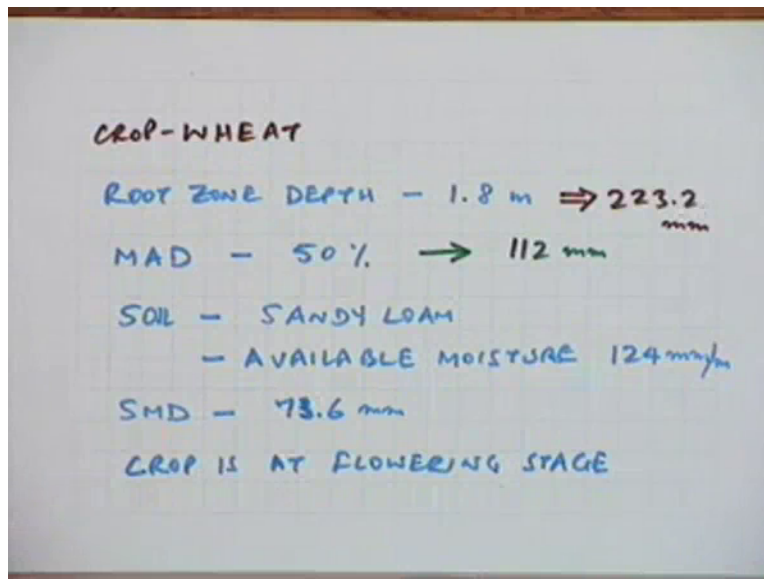 CROP-WHEAT
ROOT ZONE DEPTH - 1.8 m ⇒ 223.2 mm
MAD - 50% → 112 mm
SOIL - SANDY LOAM
- AVAILABLE MOISTURE 124 mm/m
SMD - 73.6 mm
CROP IS AT FLOWERING STAGE